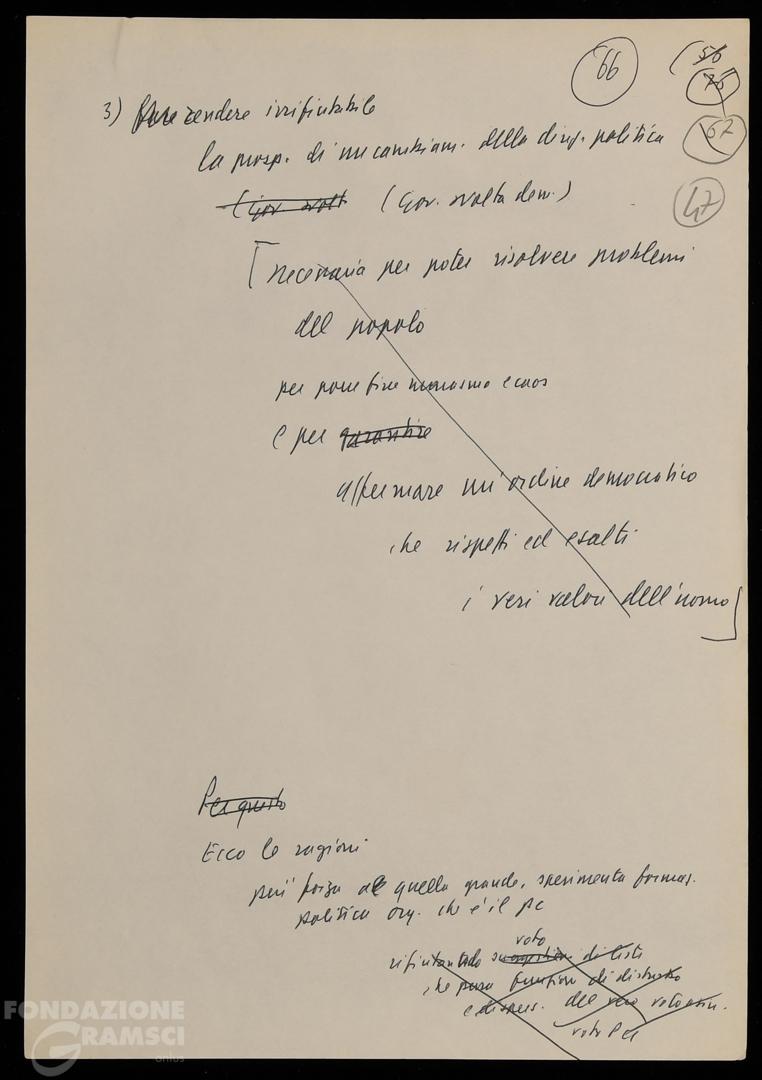 66
56
75
67
47
3) rendere irrifiutabile
la prosp. di un cambiam. della direz. politica
(Gov. svolt (Gov. svolta dem.)
[necessaria per poter risolvere problemi
del popolo
per porre fine marasma e caos
e per garantire
affermare un'ordine democratico
che rispetti ed esalti
i veri valori dell'uomo]
Per questo
Ecco le ragioni
più forza a quella grande, sperimenta formaz.
politica org. che è il pc
voto
rifiutando suggestioni di liste
che funzioni di disturbo
e dispers. del voto
voto Pci
FONDAZIONE
GRAMSCI
onlus